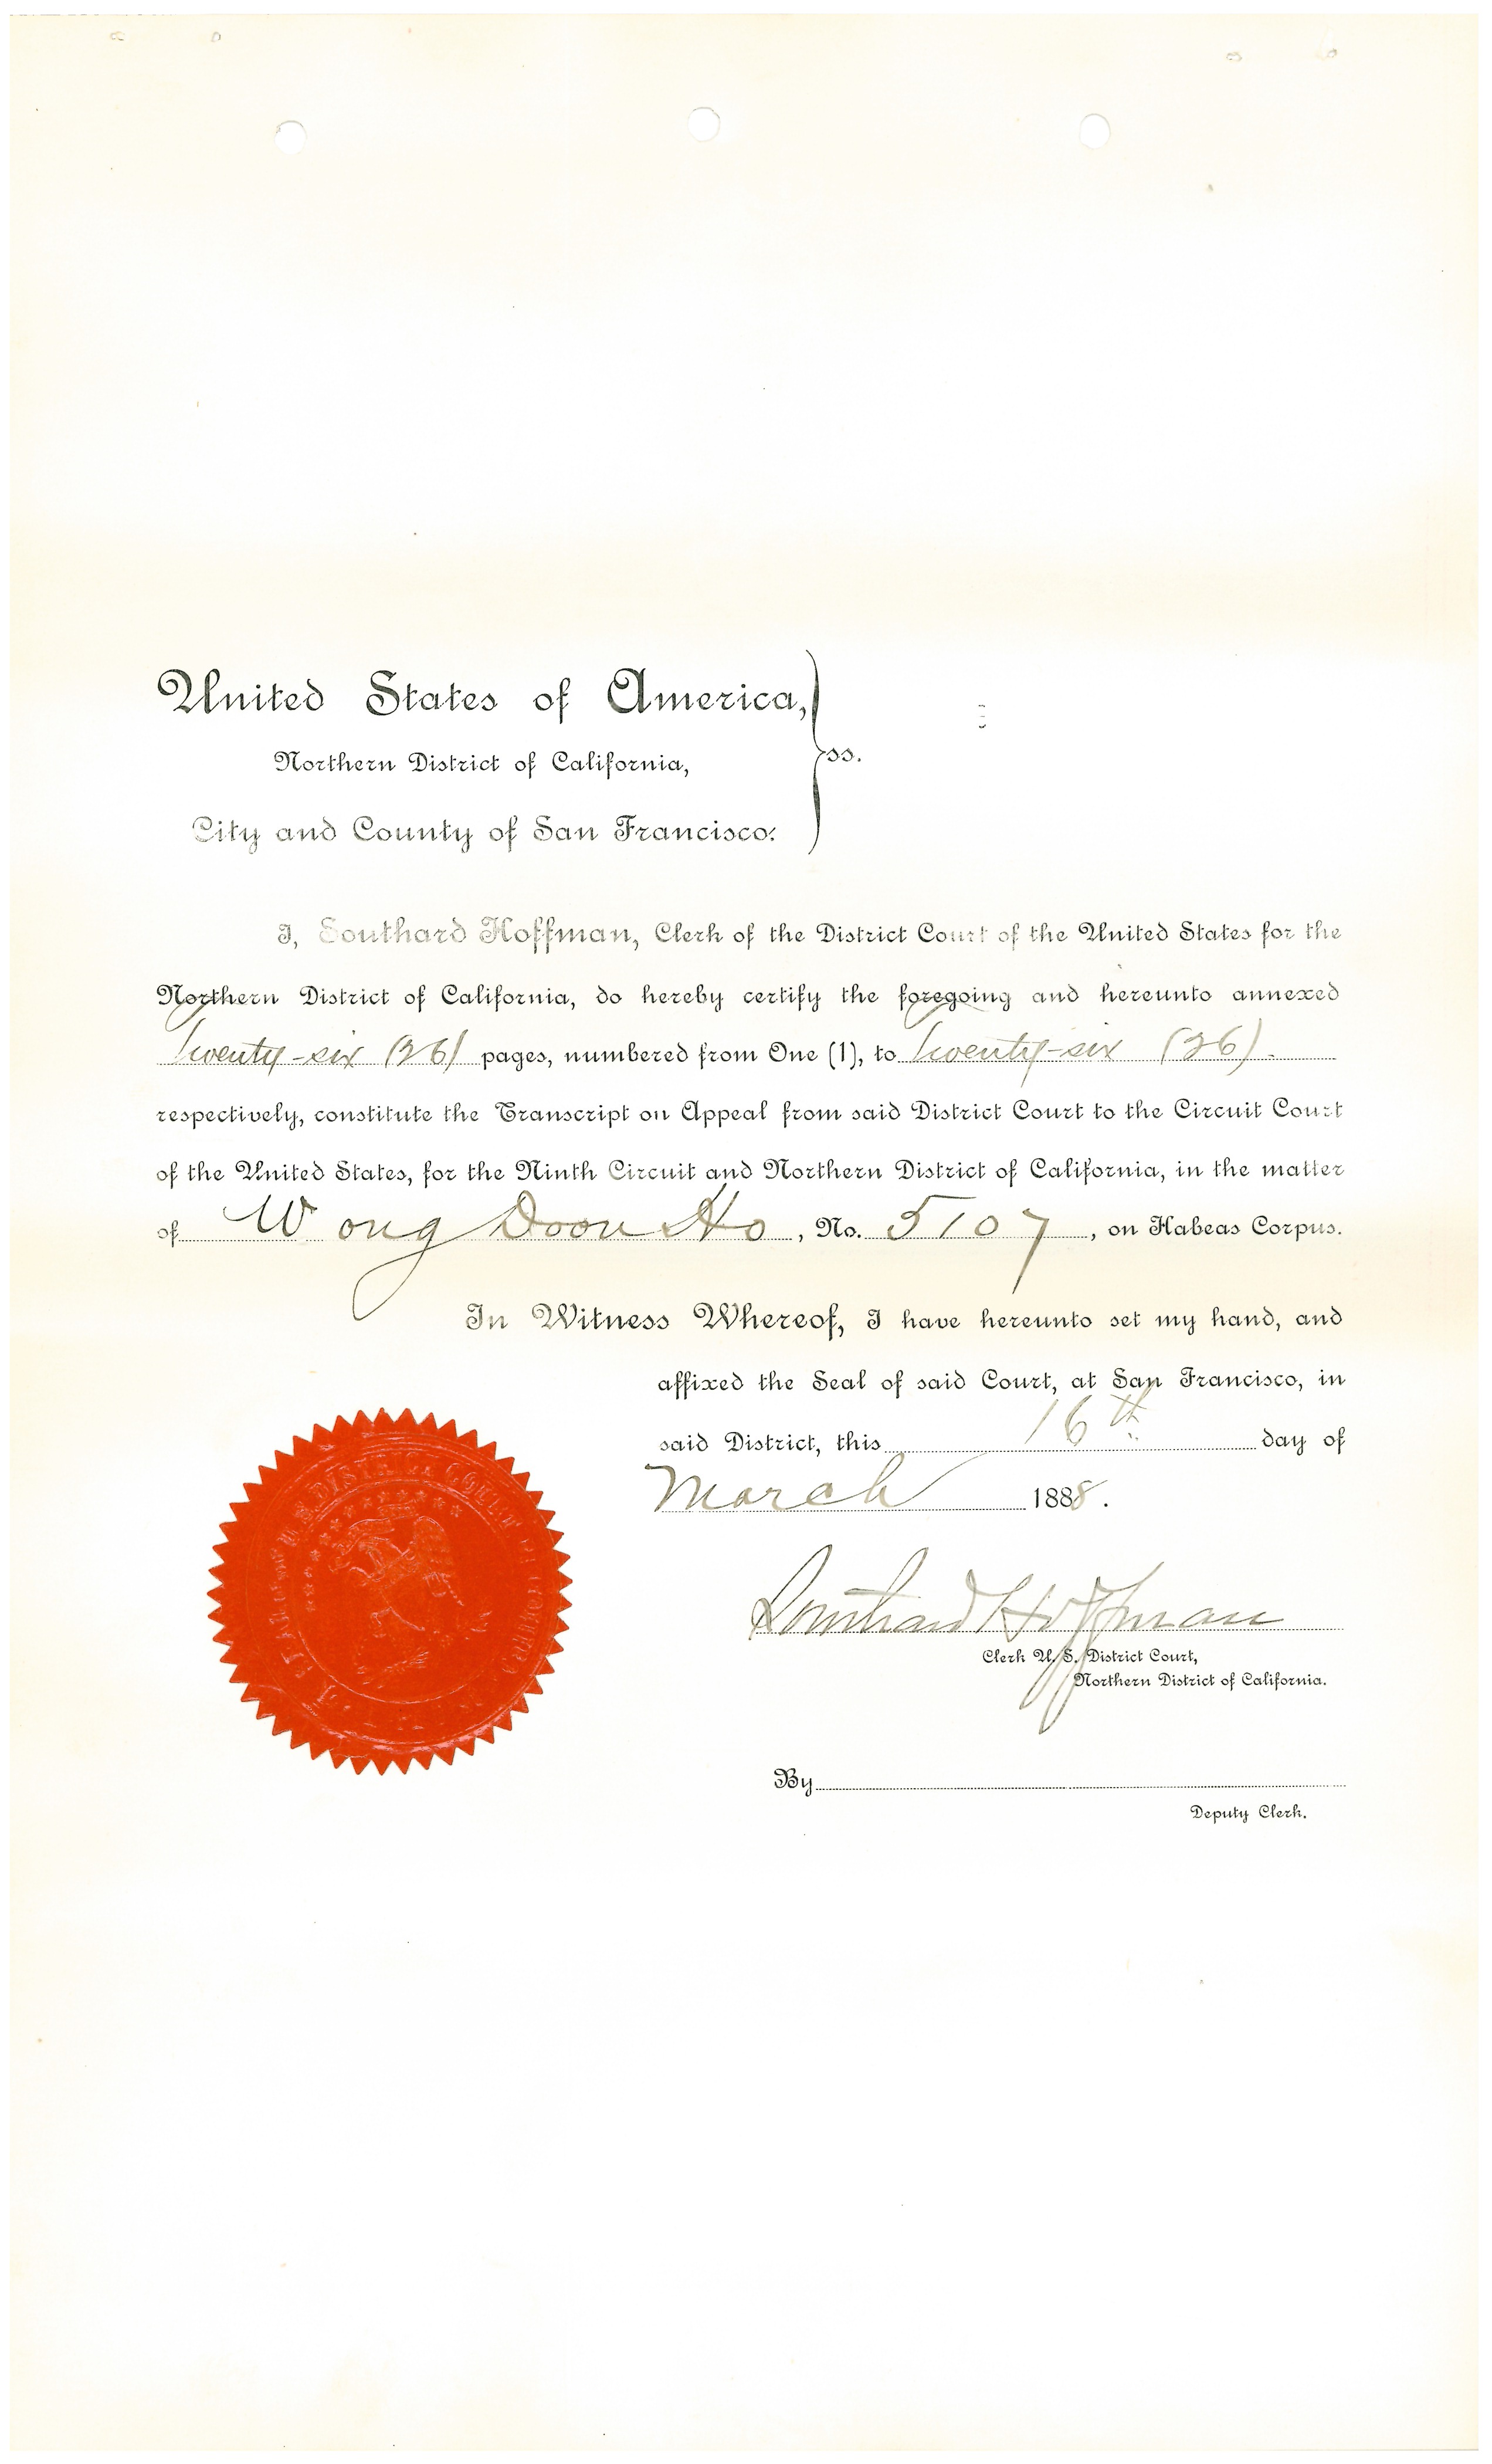 United States of America,
Northern District of California,
ss.
City and County of San Francisco.
I, Southard Hoffman, Clerk of the District Court of the United States for the
Northern District of California, do hereby certify the foregoing and hereunto annexed
Twenty-six (26) pages, numbered from One (1), to Twenty-six (26).
respectively, constitute the Transcript on Appeal from said District Court to the Circuit Court
of the United States, for the Ninth Circuit and Northern District of California, in the matter
of Wong Doon Ho, No. 5107, on Habeas Corpus.
In Witness Whereof, I have hereunto set my hand, and
affixed the Seal of said Court, at San Francisco, in
said District, this 16th day of
March 1888.
Southard Hoffman
Clerk U. S. District Court,
Northern District of California.
By
Deputy Clerk.
U.S. DISTRICT COURT